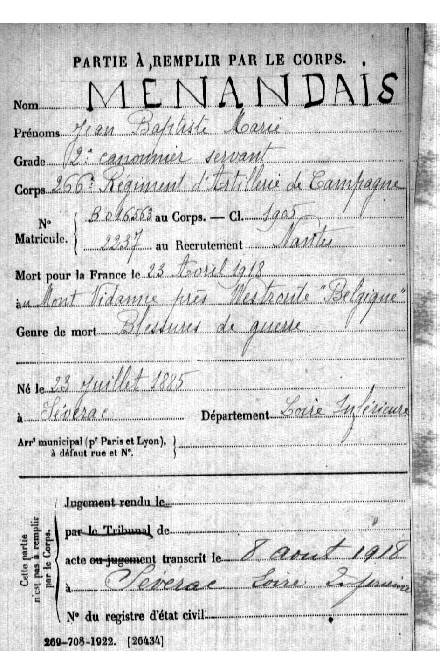 PARTIE À REMPLIR PAR LE CORPS.
Nom MENANDAIS
Prénoms Jean Baptiste Marie
Grade 2e canonnier servant
Corps 266e Régiment d'Artillerie de Campagne
No Matricule. B.016563 au Corps. — Cl. 1905
2237 au Recrutement Nantes
Mort pour la France le 23 Avril 1918
au Mont Vidanne près Westoute "Belgique"
Genre de mort Blessures de guerre
Né le 23 Juillet 1885
à Séverac Département Loire Inférieure
Arrt municipal (pr Paris et Lyon), à défaut rue et No.
Cette partie n'est pas à remplir par le Corps.
Jugement rendu le
par le Tribunal de
acte ou jugement transcrit le 8 août 1918
à Séverac Loire Inférieure
No du registre d'état civil
269-708-1922. [26434]